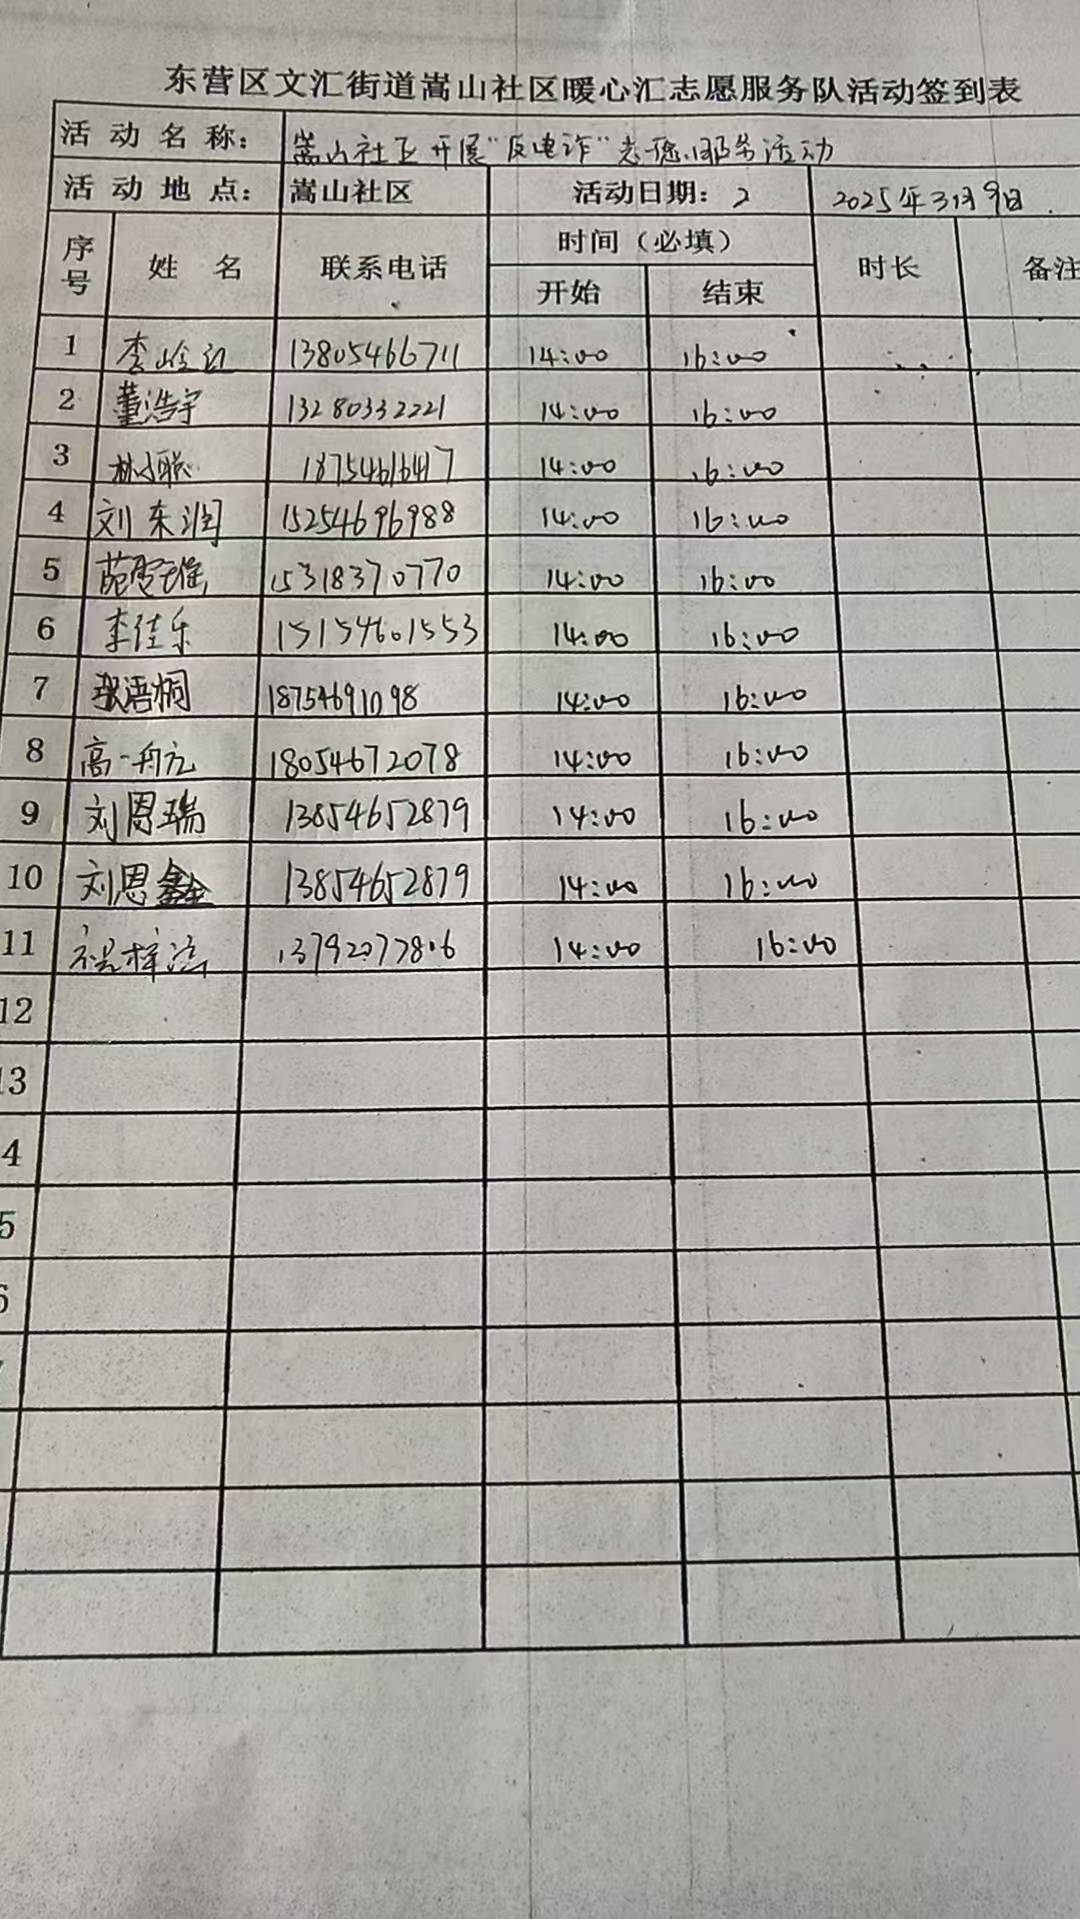 东营区文汇街道嵩山社区暖心汇志愿服务队活动签到表
活动名称： 嵩山社区开展“反电诈”志愿服务活动
活动地点： 嵩山社区 活动日期：2 2025年3月9日
序号 姓名 联系电话 时间（必填） 时长 备注
开始 结束
1 李 13805466711 14:00 16:00
2 董浩宇 13280332221 14:00 16:00
3 林小聪 18754616417 14:00 16:00
4 刘东润 15254696988 14:00 16:00
5 15318370770 14:00 16:00
6 李佳乐 15154601553 14:00 16:00
7 张语桐 18754691098 14:00 16:00
8 高一舟 18054672078 14:00 16:00
9 刘恩瑞 13854652879 14:00 16:00
10 刘恩鑫 13854652879 14:00 16:00
11 梓 13792077806 14:00 16:00
12
13
4
5
6